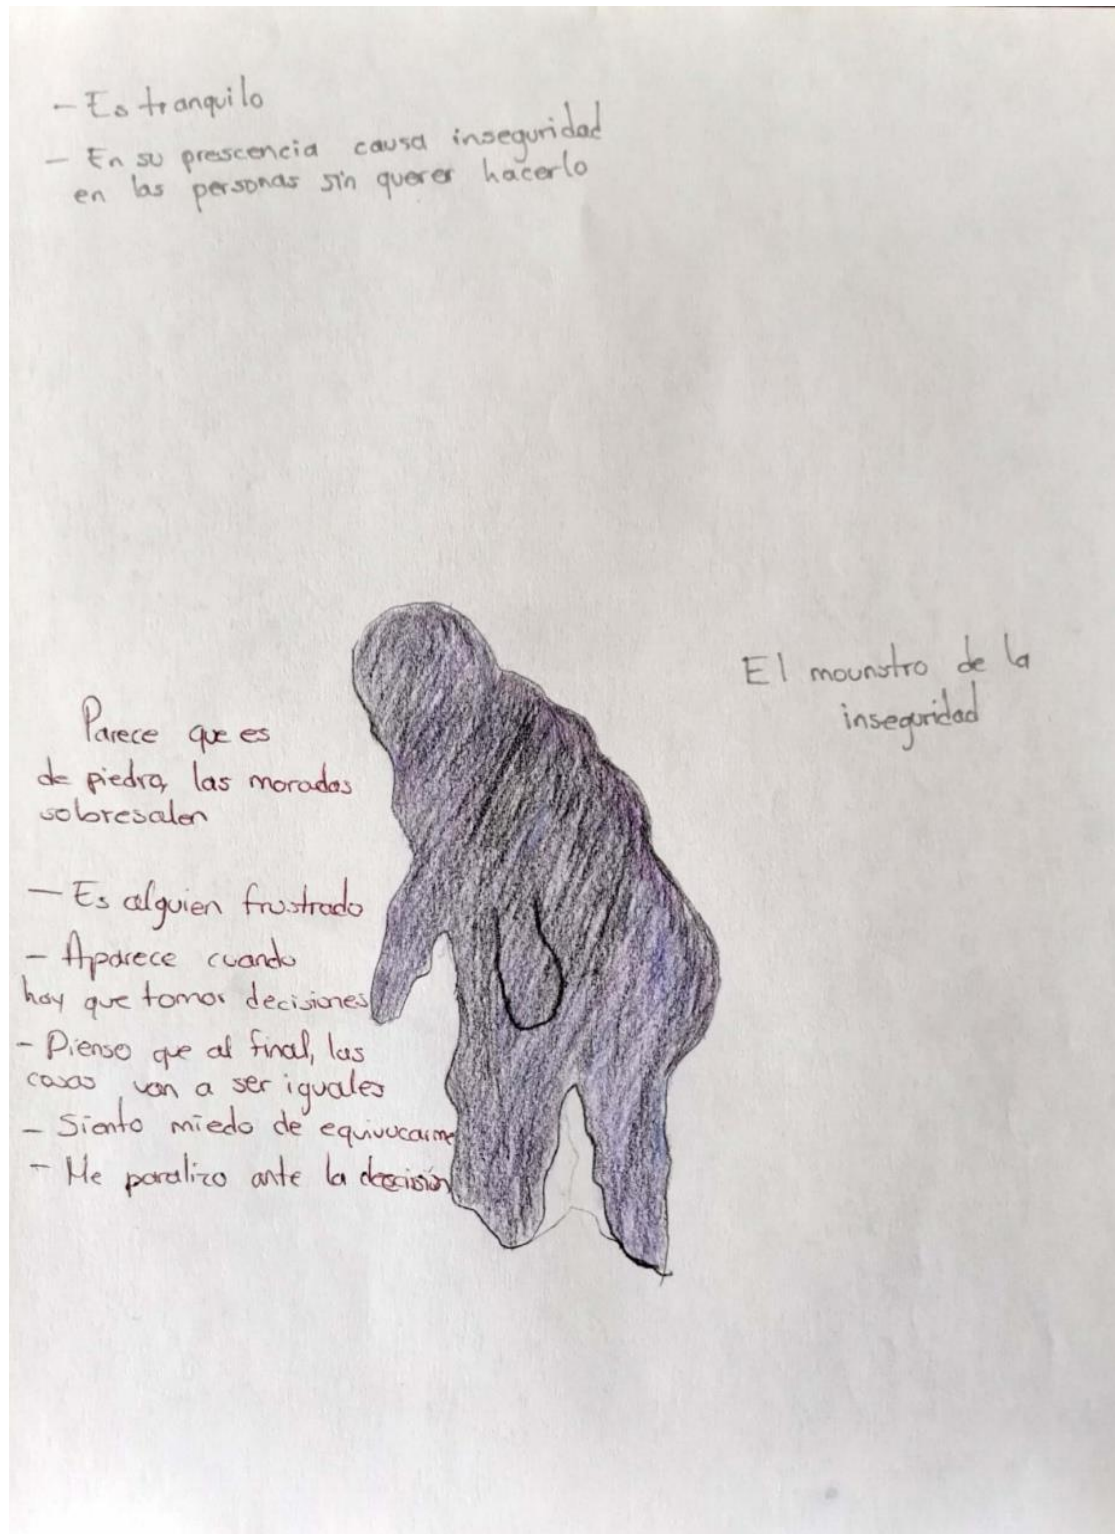 - Es tranquilo
- En su prescencia causa inseguridad
en las personas sin querer hacerlo
El mounstro de la
inseguridad
Parece que es
de piedra, las moradas
sobresalen
- Es alguien frustrado
- Aparece cuando
hay que tomar decisiones
- Pienso que al final, las
cosas van a ser iguales
- Siento miedo de equivocarme
- Me paralizo ante la decisión